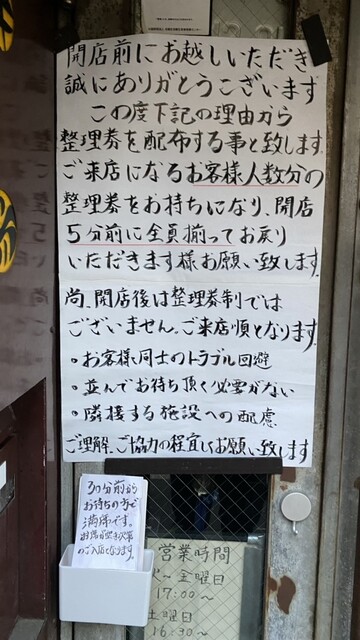 開店前にお越しいただき
誠にありがとうございます
この度下記の理由から
整理券を配布する事と致します。
ご来店になるお客様人数分の
整理券をお持ちになり、開店
5分前に全員揃ってお戻り
いただきます様お願い致します。
尚、開店後は整理券制では
ございません。ご来店順となります。
・お客様同士のトラブル回避
・並んでお待ち頂く必要がない
・隣接する施設への配慮
ご理解、ご協力の程宜しくお願い致します
30分前から
お待ちの方で
満席です。
お席が空き次第
のご入店となります。
営業時間
火〜金曜日
17:00〜
土曜日
16:30〜